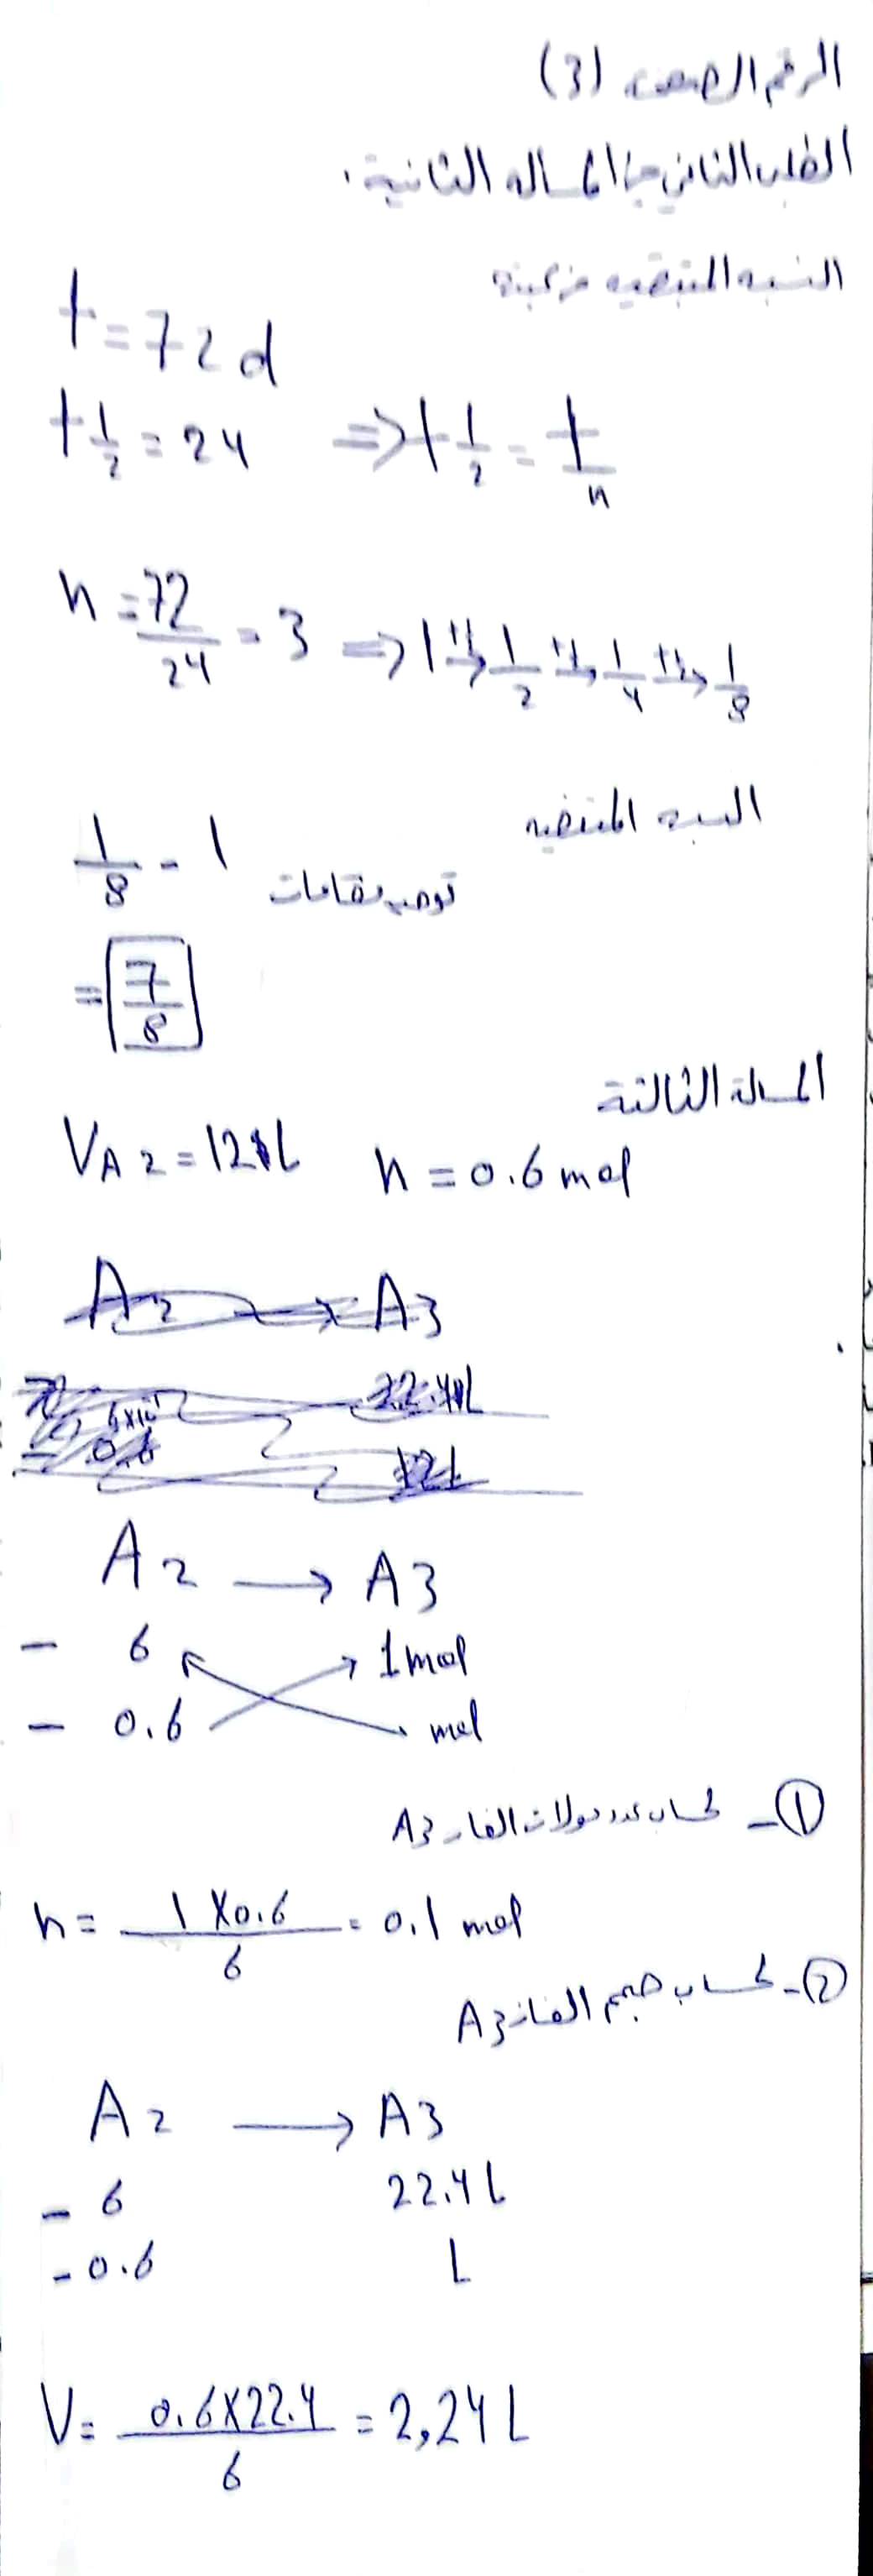 الرقم الصف (3)
الطلب الثاني من المسالة الثانية.
النسبه المتبقيه من عينة
t = 72 d
t 1/2 = 24 => t 1/2 = t/n
n = 72/24 = 3 => 1 → 1/2 → 1/4 → 1/8
النسبه المتبقيه
1/8 - 1 توحيد مقامات
= 7/8
المسالة الثالثة
VA2 = 12L n = 0.6 mol
A2 → A3
22.4L
12L
A2 → A3
- 6 1 mol
- 0.6 mol
1- لحساب عدد مولات الغاز A3
n = 1 X 0.6 / 6 = 0.1 mol
2- لحساب حجم الغاز A3
A2 → A3
- 6 22.4 L
- 0.6 L
V = 0.6 X 22.4 / 6 = 2,24 L